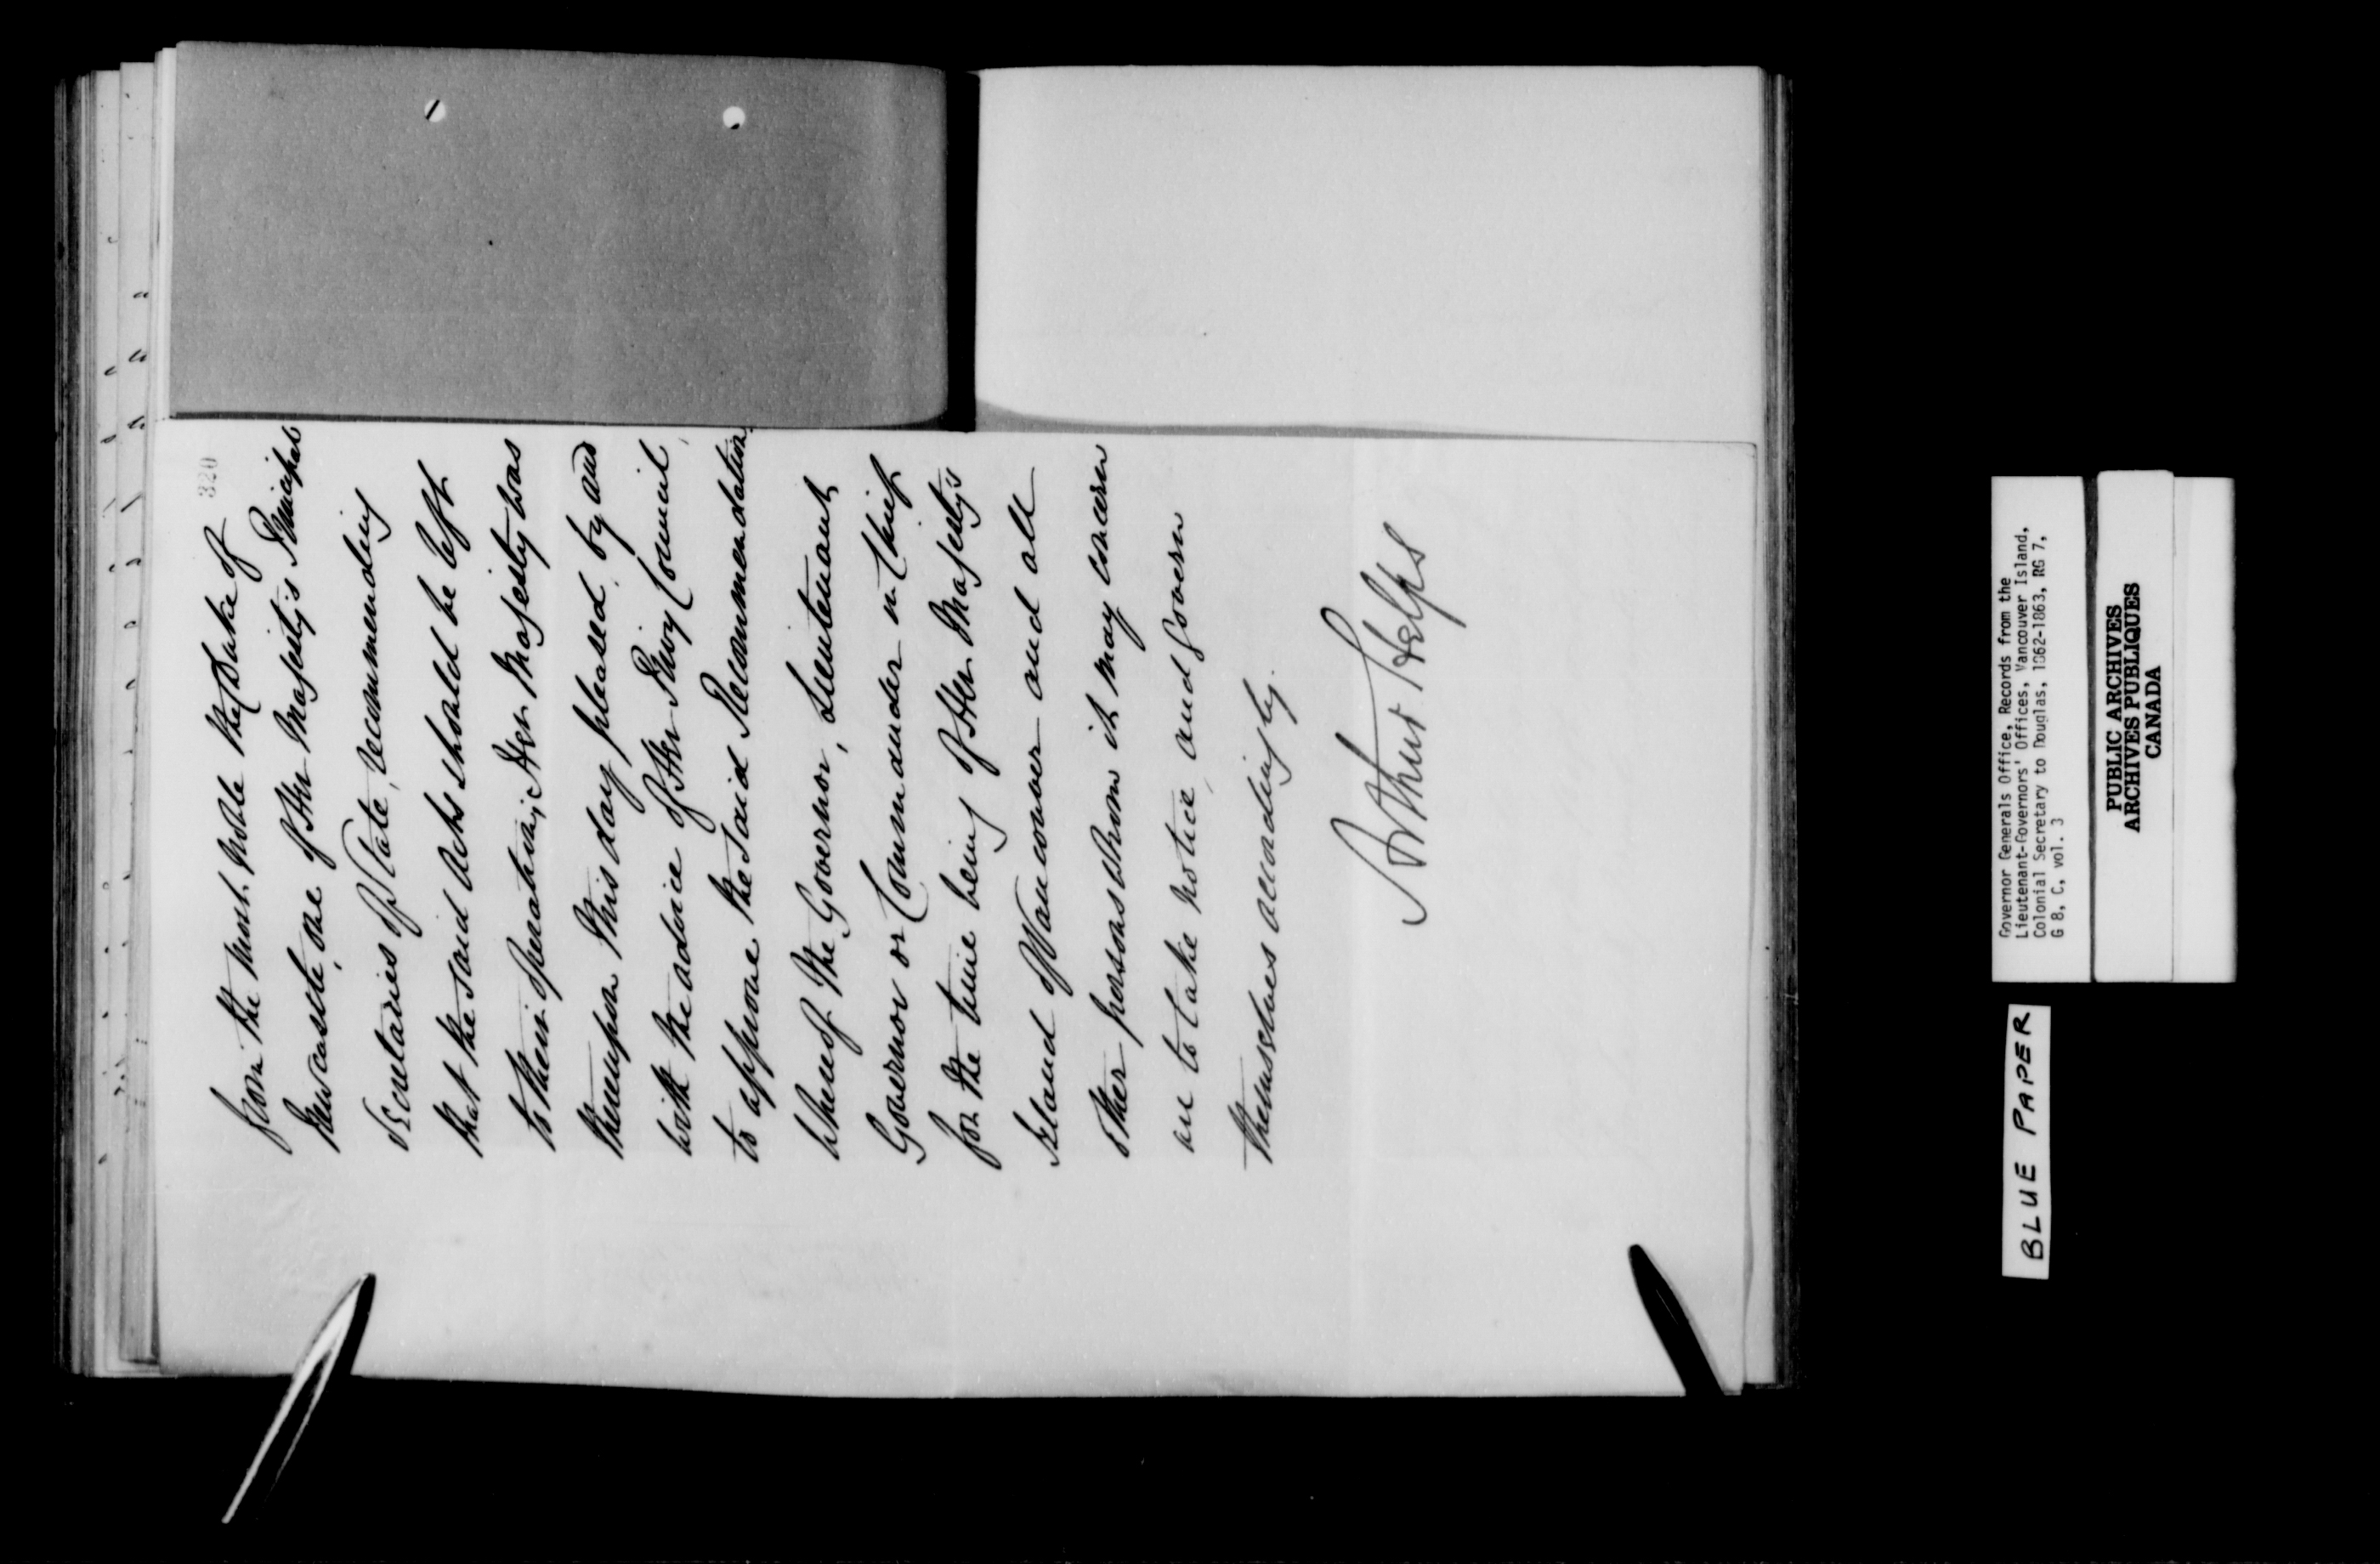 320
from the Most Noble the Duke of
Newcastle, one of Her Majesty's Principal
Secretaries of State, recommending
that the said Acts should be left
to their operation; Her Majesty was
thereupon this day pleased, by and
with the advice of Her Privy Council,
to approve the said Recommendation,
Whereof the Governor, Lieutenant
Governor or Commander in Chief
for the time being of Her Majesty's
Island of Vancouver and all
other persons whom it may concern
are to take notice and govern
themselves accordingly.
Arthur Helps
Governor Generals Office, Records from the
Lieutenant-Governors' Offices, Vancouver Island,
Colonial Secretary to Douglas, 1862-1863, RG 7,
G 8, C, vol. 3
PUBLIC ARCHIVES
ARCHIVES PUBLIQUES
CANADA
BLUE PAPER